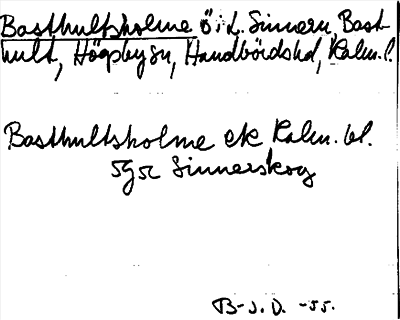 Basthultsholme ö i L. Sinnern, Bast-
hult, Högsby sn, Handbörds hd, Kalm. l.
Basthultsholme ek Kalm. bl.
5g5c Sinnerskog
B-S.D. -55.